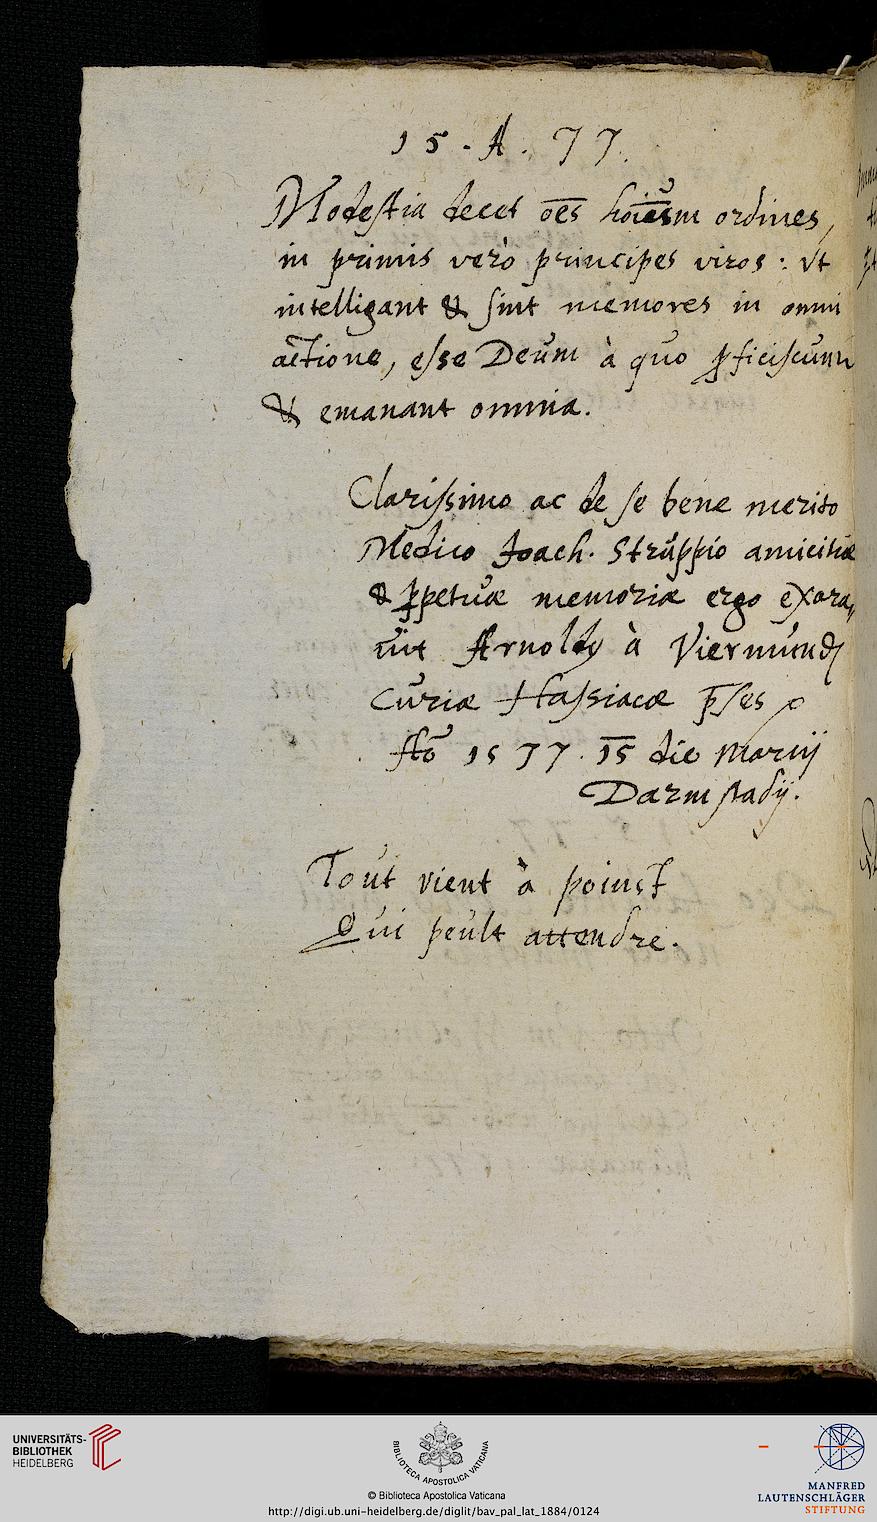 15 · A · 77.
Modestia decet oēs hoiēsm ordines,
in primis verò principes viros : vt
intelligant & sint memores in omni
actione, esse Deum à quo ꝓficiscunt
& emanant omnia.
Clarissimo ac de se bene merito
Medico Joach. Struppio amicitiæ
& ꝑpetuæ memoriæ ergo exora„
uit Arnoldꝯ à Viermund
Curiæ Hassiacæ p̄ses
Aō 1577. 15 die Martij
Darmstadij.
Tout vient à poinct
Qui peult attendre.
UNIVERSITÄTS-
BIBLIOTHEK
HEIDELBERG
BIBLIOTECA APOSTOLICA VATICANA
© Biblioteca Apostolica Vaticana
http://digi.ub.uni-heidelberg.de/diglit/bav_pal_lat_1884/0124
MANFRED
LAUTENSCHLÄGER
STIFTUNG